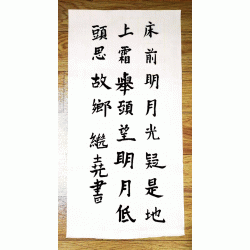 床前明月光疑是地
上霜舉頭望明月低
頭思故鄉 繼堯書